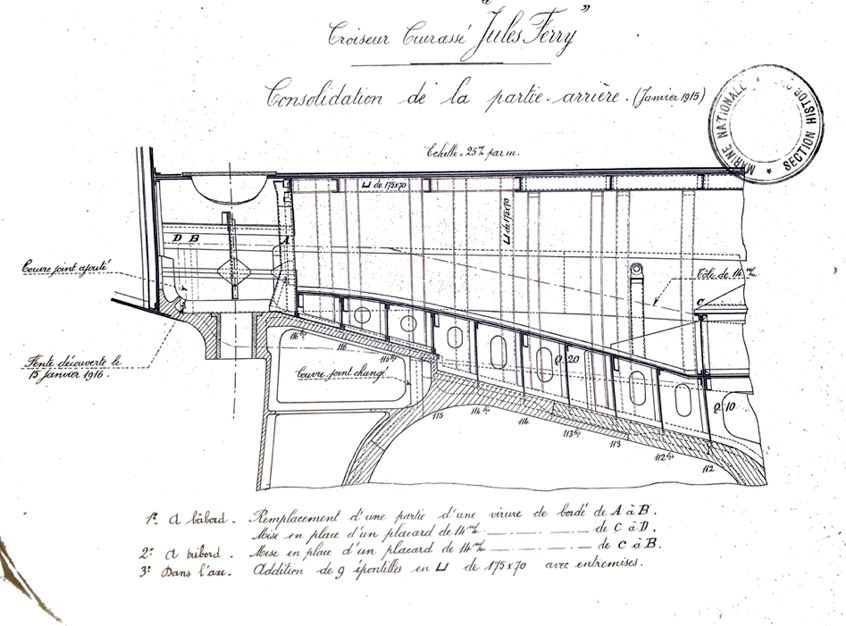 Croiseur Cuirassé "Jules Ferry"
Consolidation de la partie arrière. (Janvier 1915)
Echelle = 25 m/m par m.
MARINE NATIONALE * SECTION HISTOR *
⊔ de 175x70
⊔ de 175x70
D B
A
Couvre joint ajouté
Tôle de 14 m/m
C
F
Fente découverte le
15 janvier 1916.
116 ½
116
115 ½
Couvre joint changé
Q.20
Q.10
115
114 ½
114
113 ½
113
112 ½
112
1º. A bâbord. Remplacement d'une partie d'une virure de bordé de A à B.
Mise en place d'un placard de 14 m/m _._._._ de C à D.
2º. A tribord. Mise en place d'un placard de 14 m/m _._._._ de C à B.
3º. Dans l'axe. Addition de 9 épontilles en ⊔ de 175x70 avec entremises.